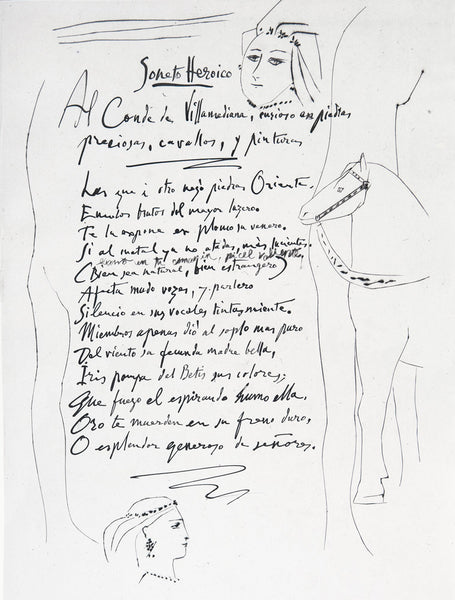 Soneto Heroico
Al Conde de Villamediana, curioso en piedras
preciosas, cavallos, y pinturas
Las que à otro negò piedras Oriente,
Emulos brutos del mayor luzero,
Te las expone en plomo su venero,
Si al metal ya no atadas, mas lucientes.
en tu pincel
(Bien sea natural, bien estrangero)
Afecta mudo vozes, y parlero
Silencio en sus vocales tintas miente.
Miembros apenas diò al soplo mas puro
Del viento su fecunda madre bella,
Iris pompa del Betis sus colores;
Que fuego el espirando humo ella,
Oro te muerden en su freno duro,
O esplendor generoso de señores.